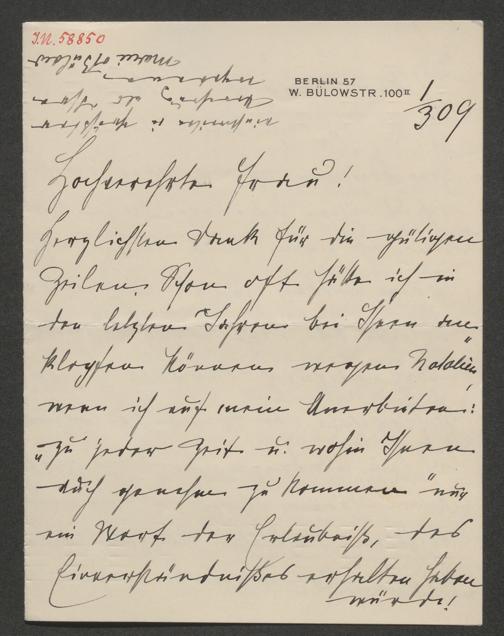 I.N. 58850
BERLIN 57
W. BÜLOWSTR. 100 II
1/3 09
Hochverehrte Frau!
Herzlichsten Dank für die gütigen
Zeilen. Schon oft hätte ich in
den letzten Jahren bei Ihnen an-
klopfen können wegen "Natalie",
wenn ich auf mein Anerbieten:
"zu jeder Zeit u. wohin Ihnen
auch genehm zu kommen" nur
ein Wort der Erlaubniß, des
Einverständnißes erhalten haben
würde!
Marie v Bülow